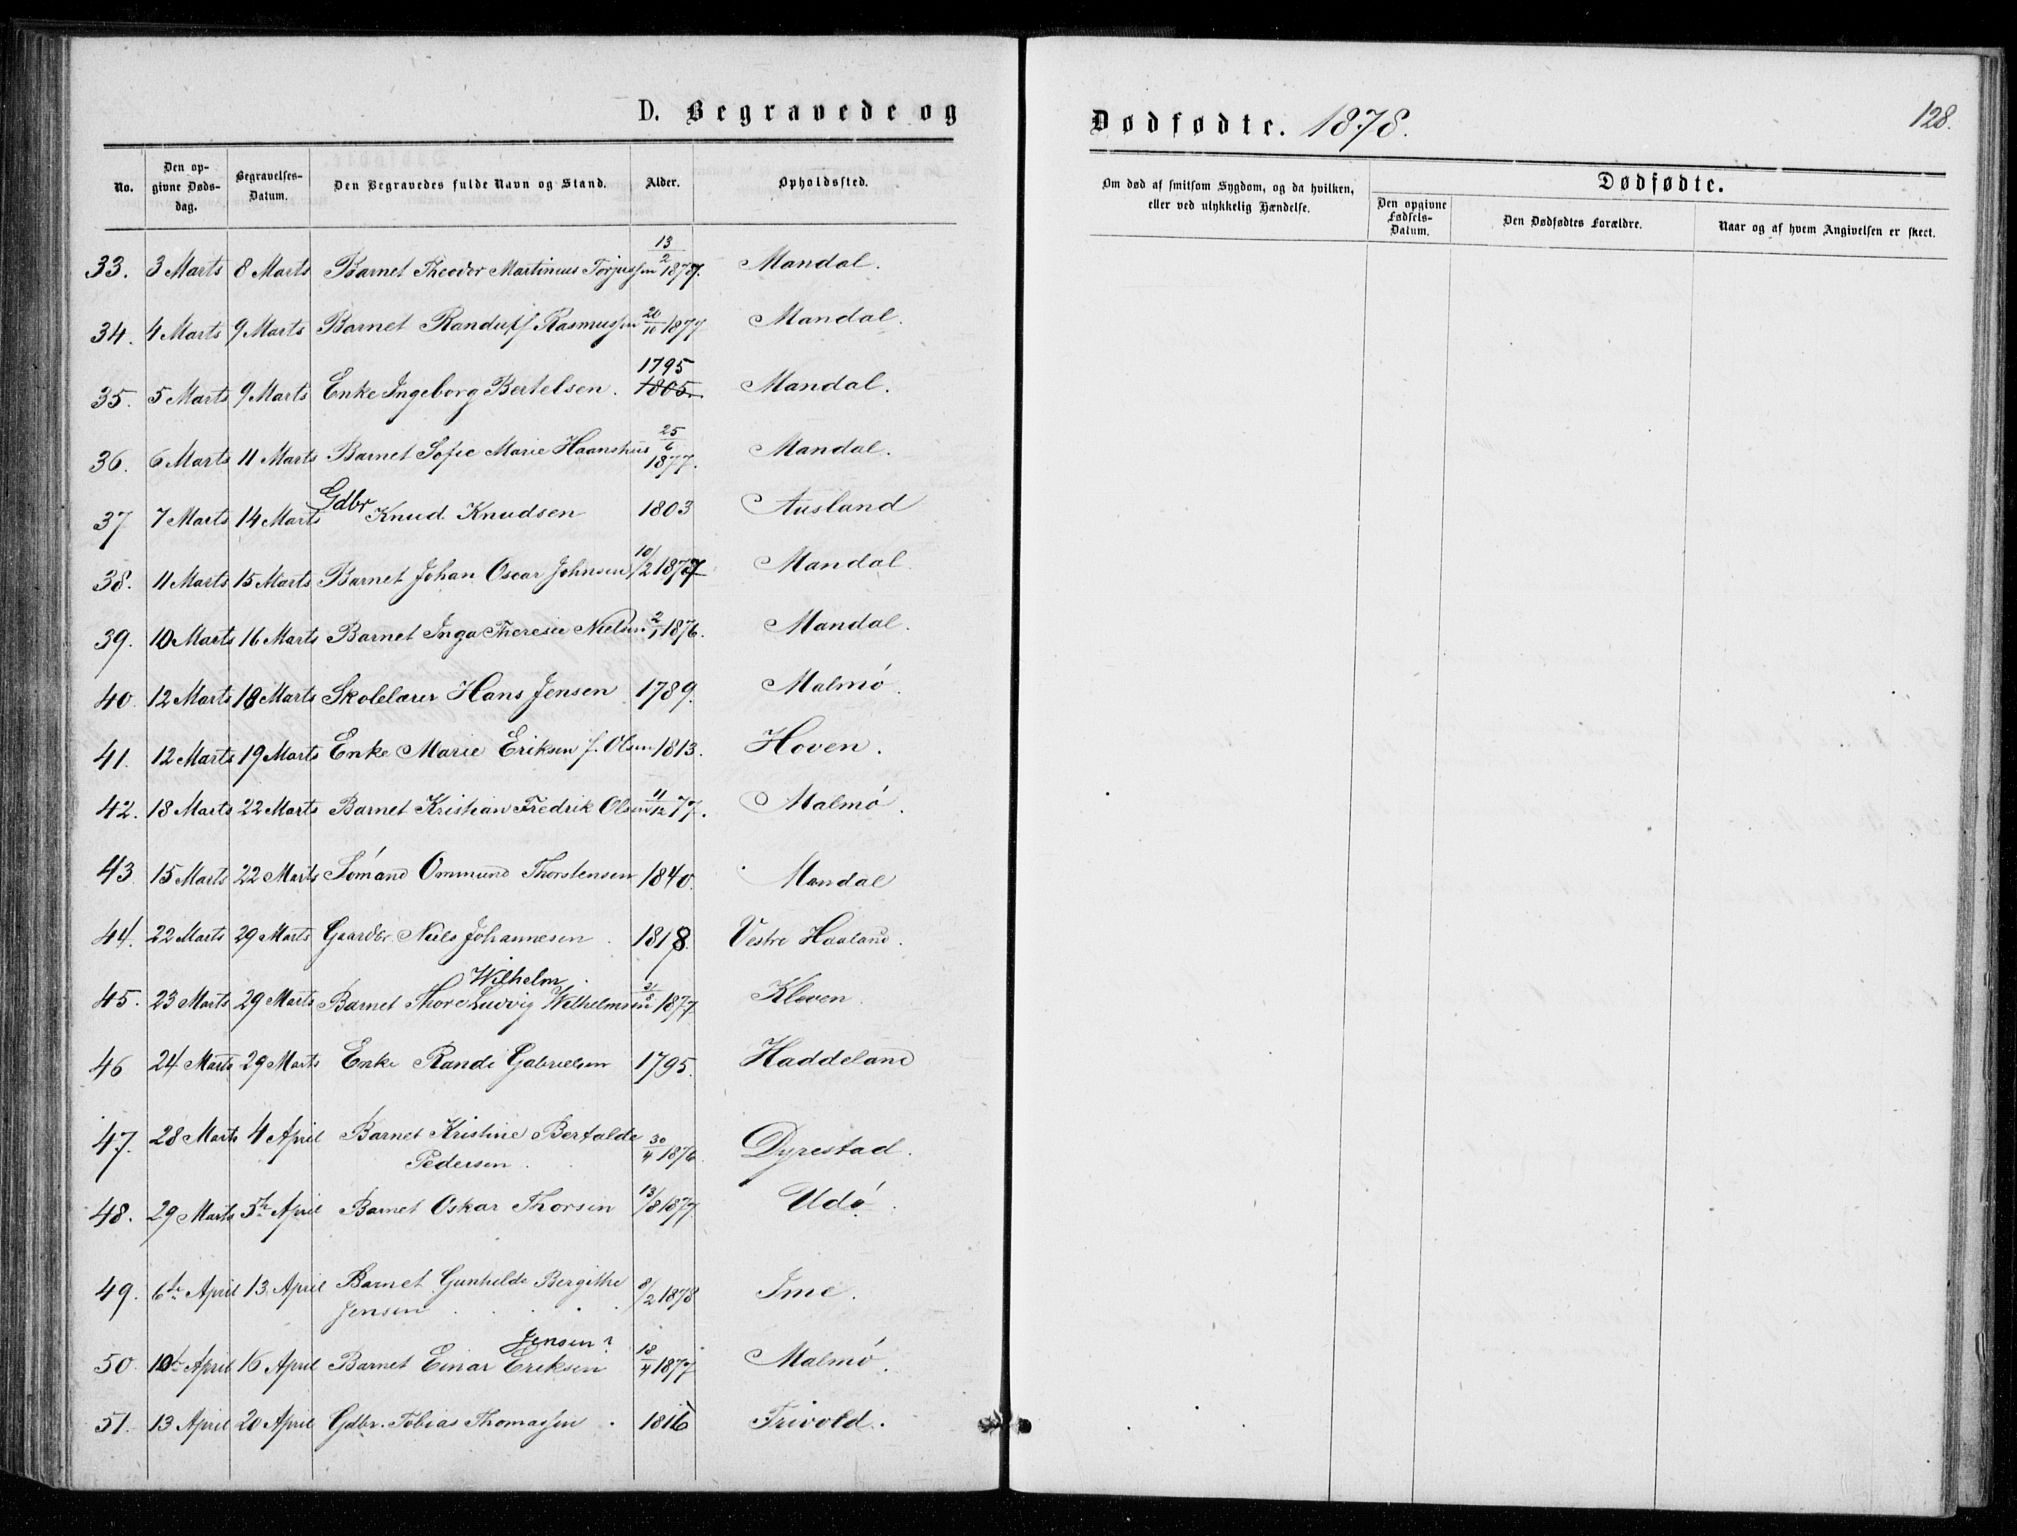 D. Begravede og Dødfødte. 1878. 128.
No. | Den opgivne Dødsdag. | Begravelses-Datum. | Den Begravedes fulde Navn og Stand. | Alder. | Opholdssted. | Om død af smitsom Sygdom, og da hvilken, eller ved ulykkelig Hændelse. | Dødfødte. | Den opgivne Fødsels-Datum. | Den Dødfødtes Forældre. | Naar og af hvem Angivelsen er skeet.
33. 3 Marts 8 Marts Barnet Theodor Martinius Torjussen 13/2 1877. Mandal.
34. 4 Marts 9 Marts Barnet Randulf Rasmussen 20/10 1877 Mandal.
35. 5 Marts 9 Marts Enke Ingeborg Bertelsen. 1795 1805. Mandal.
36. 6 Marts 11 Marts Barnet Sofie Marie Haanshus 25/6 1877. Mandal.
37 7 Marts 14 Marts Gdbr Knud Knudsen 1803 Ausland
38. 11 Marts 15 Marts Barnet Johan Oscar Johnsen 10/2 1877 Mandal.
39. 10 Marts 16 Marts Barnet Inga Theresie Nielsen 2/1 1876. Mandal.
40. 12 Marts 18 Marts Skolelærer Hans Jensen 1789. Malmø.
41. 12 Marts 19 Marts Enke Marie Eriksen f. Olsen 1813. Hoven.
42. 18 Marts 22 Marts Barnet Kristian Fredrik Olsen 11/12 77. Malmø.
43 15 Marts 22 Marts Sømand Ommund Thorstensen 1840. Mandal
44. 22 Marts 29 Marts Gaardbr. Niels Johannesen. 1818. Vestre Haaland.
Wilhelm
45. 23 Marts 29 Marts Barnet Thore Ludvig Wilhelmsen /8 1877 Kleven.
46 24 Marts 29 Marts Enke Randi Gabrielsen 1795. Haddeland
47. 28 Marts 4 April Barnet Kristine Bertalde Pedersen. 30/4 1876. Dyrestad.
48. 29 Marts 5te April Barnet Oskar Thorsen 13/8 1877 Udø.
49. 6te April 13. April Barnet Gunhilde Bergithe Jensen 8/2 1878 Ime.
Jensen?
50. 10de April 16 April Barnet Einar Eriksen 18/4 1877 Malmø.
51. 13 April 20 April Gdbr. Tobias Thomassen. 1816 Frivold.